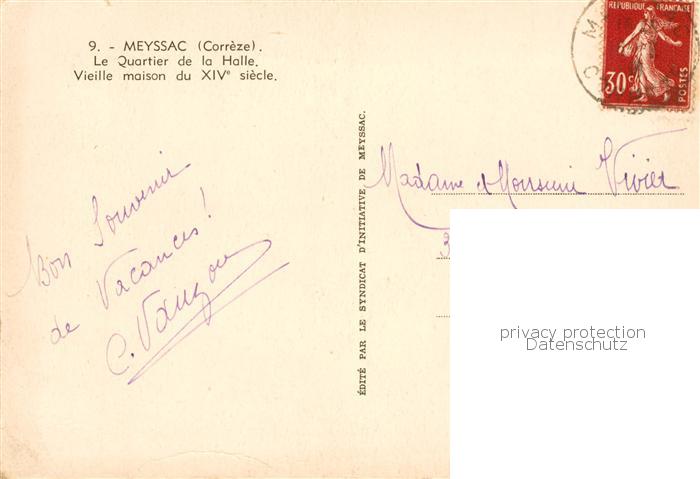 9. - MEYSSAC (Corrèze).
Le Quartier de la Halle.
Vieille maison du XIVe siècle.
Bon Souvenir
de Vacances!
ÉDITÉ PAR LE SYNDICAT D'INITIATIVE DE MEYSSAC.
REPUBLIQUE FRANÇAISE
30c
POSTES
Madame & Monsieur Vivier
3
privacy protection
Datenschutz